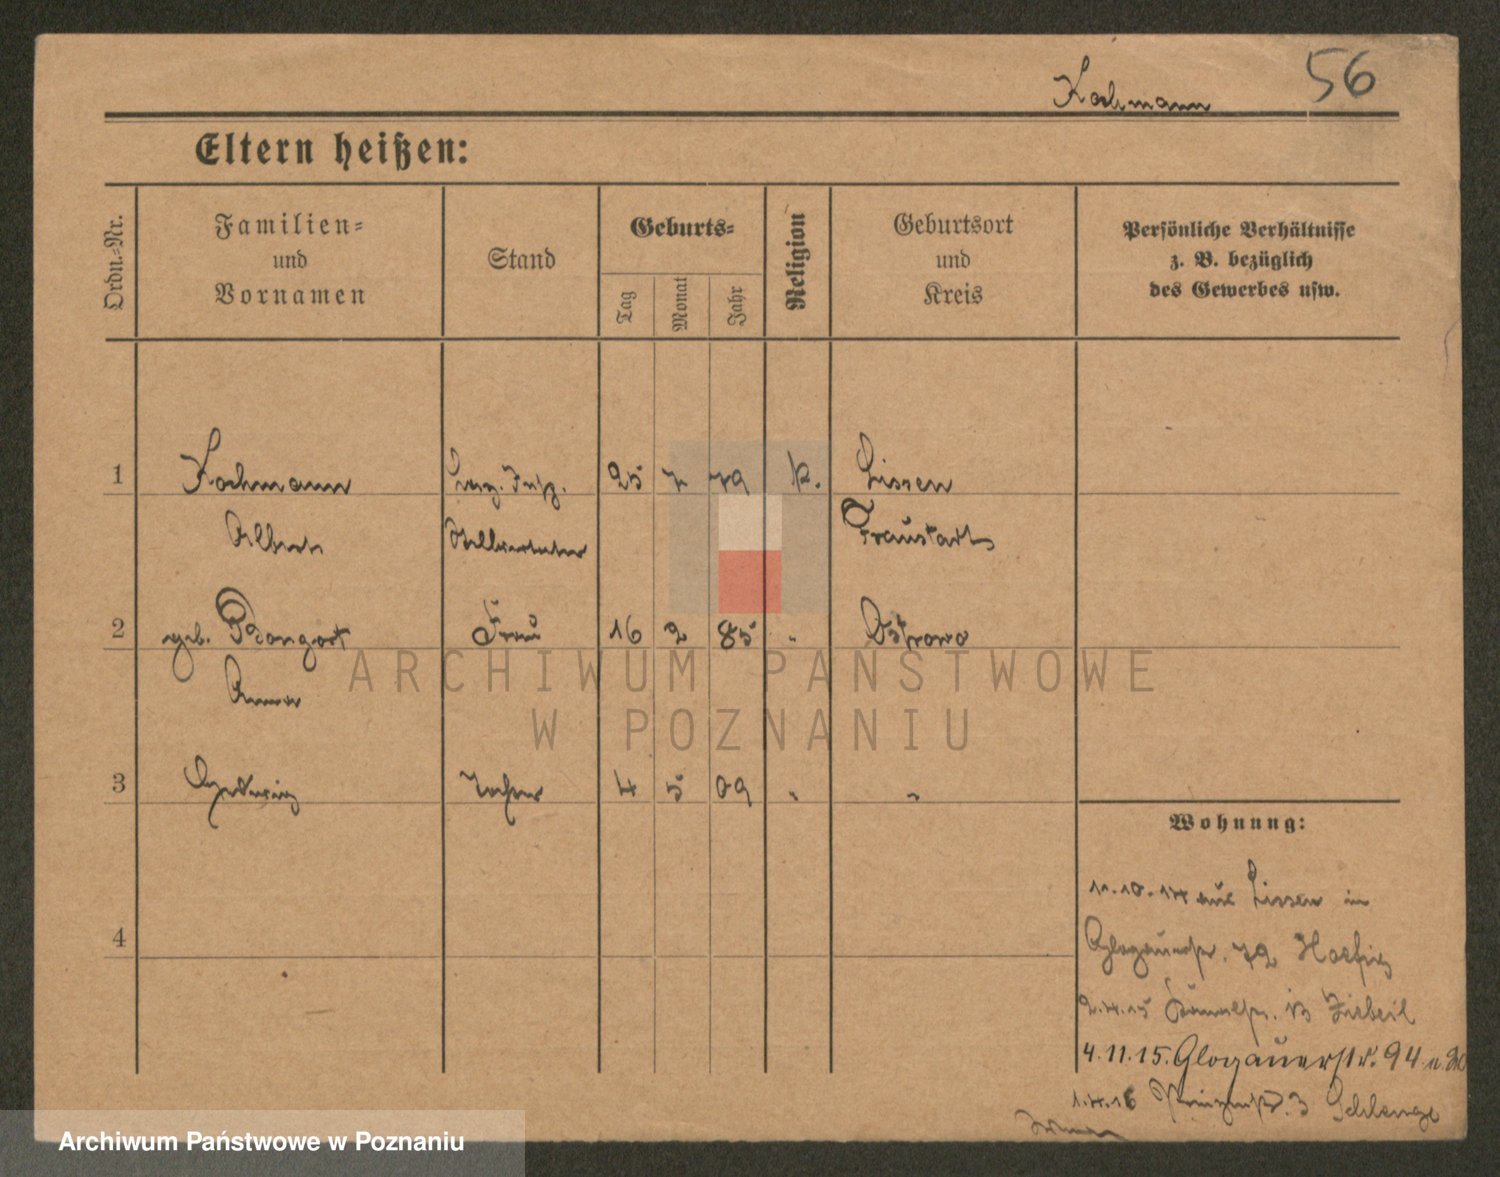 Kochmann 56
Eltern heißen:
Ordn.-Nr.
Familien-
und
Vornamen
Stand
Geburts-
Tag
Monat
Jahr
Religion
Geburtsort
und
Kreis
Persönliche Verhältnisse
z. B. bezüglich
des Gewerbes usw.
1 Kochmann 25 7 79 k. Lissen
Albert Fraustadt
2 geb. Frau 16 2 85 " Ostrowo
Anna
3 Hedwig Tochter 4 5 09 " "
4
Wohnung:
11.10.14 aus Lissen in
Glogauerstr. 72
2.4.15
4.11.15. Glogauerstr. 94
1.4.16 3
ARCHIWUM PAŃSTWOWE
W POZNANIU
Archiwum Państwowe w Poznaniu